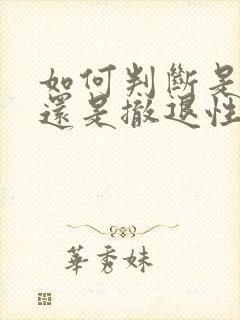 如何判斷是
還是撤退性
華秀妹